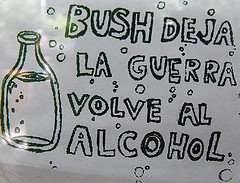 BUSH DEJA
LA GUERRA
VOLVE AL
ALCOHOL.